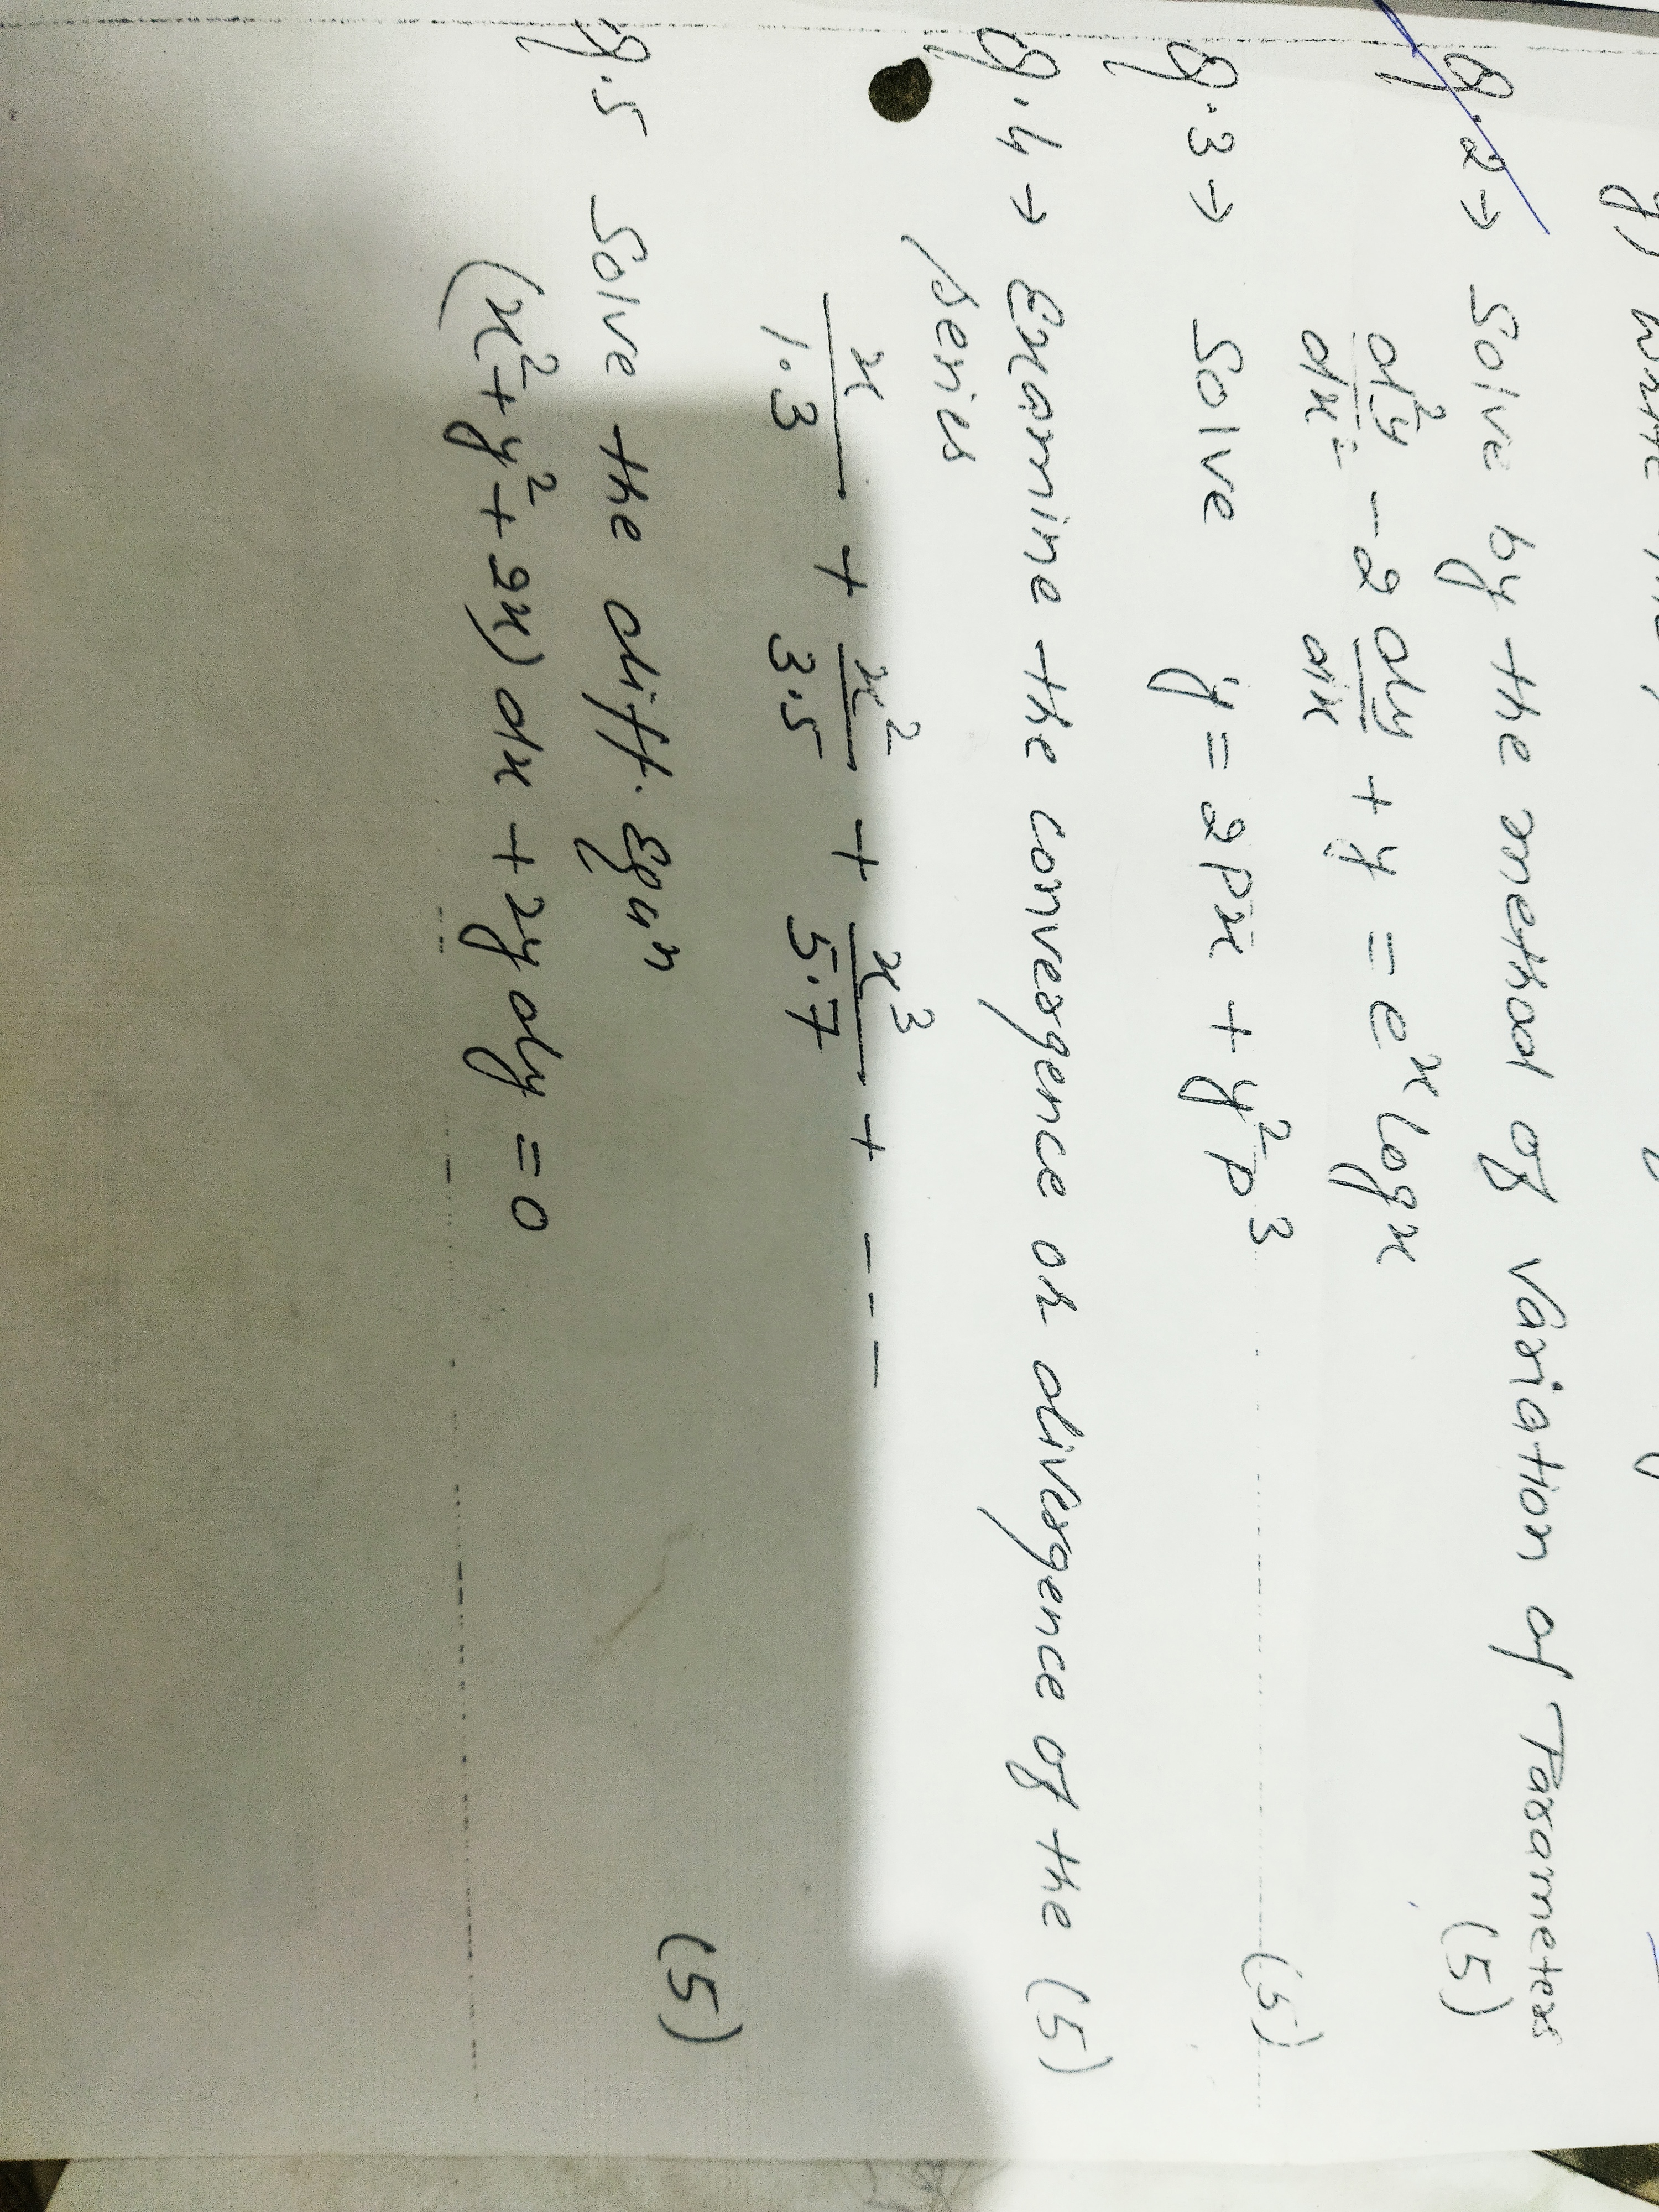 g) write the
Q.2→ Solve by the method of variation of Parameter
(5)
d²y/dx² - 2 dy/dx + y = eˣ logx
Q.3→ Solve y = 2px + y²p³ (5)
Q.4→ Examine the convergence or divergence of the (5)
series
x/1.3 + x²/3.5 + x³/5.7 + - - -
Q.5 Solve the diff. Equⁿ (5)
(x² + y² + 2x) dx + 2y dy = 0